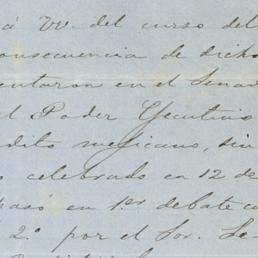 á VV. del curso del
consecuencia de dicho
sentaron en el Senad
el Poder Ejecutivo
édito mejicano, sin
o celebrado en 12 de
pasó en 1er debate co
2º por el Sor. Se